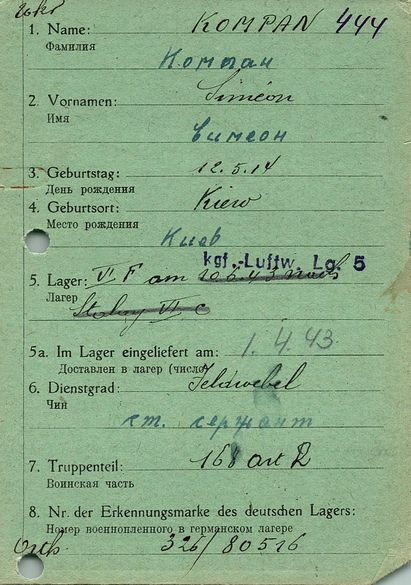 1. Name: KOMPAN 444
Фамилия
Компан
2. Vornamen: Siméon
Имя
Симеон
3. Geburtstag: 12.5.14
День рождения
4. Geburtsort: Kiew
Место рождения
Киев
kgf.-Luftw. Lg. 5
5. Lager: VI F am 10.6.43 nach
Лагер
Stalag VI C
5a. Im Lager eingeliefert am: 1.4.43
Доставлен в лагер (число)
6. Dienstgrad: Feldwebel
Чин
ст. сержант
7. Truppenteil: 168 art R
Воинская часть
8. Nr. der Erkennungsmarke des deutschen Lagers:
Номер военнопленного в германском лагере
326/80516